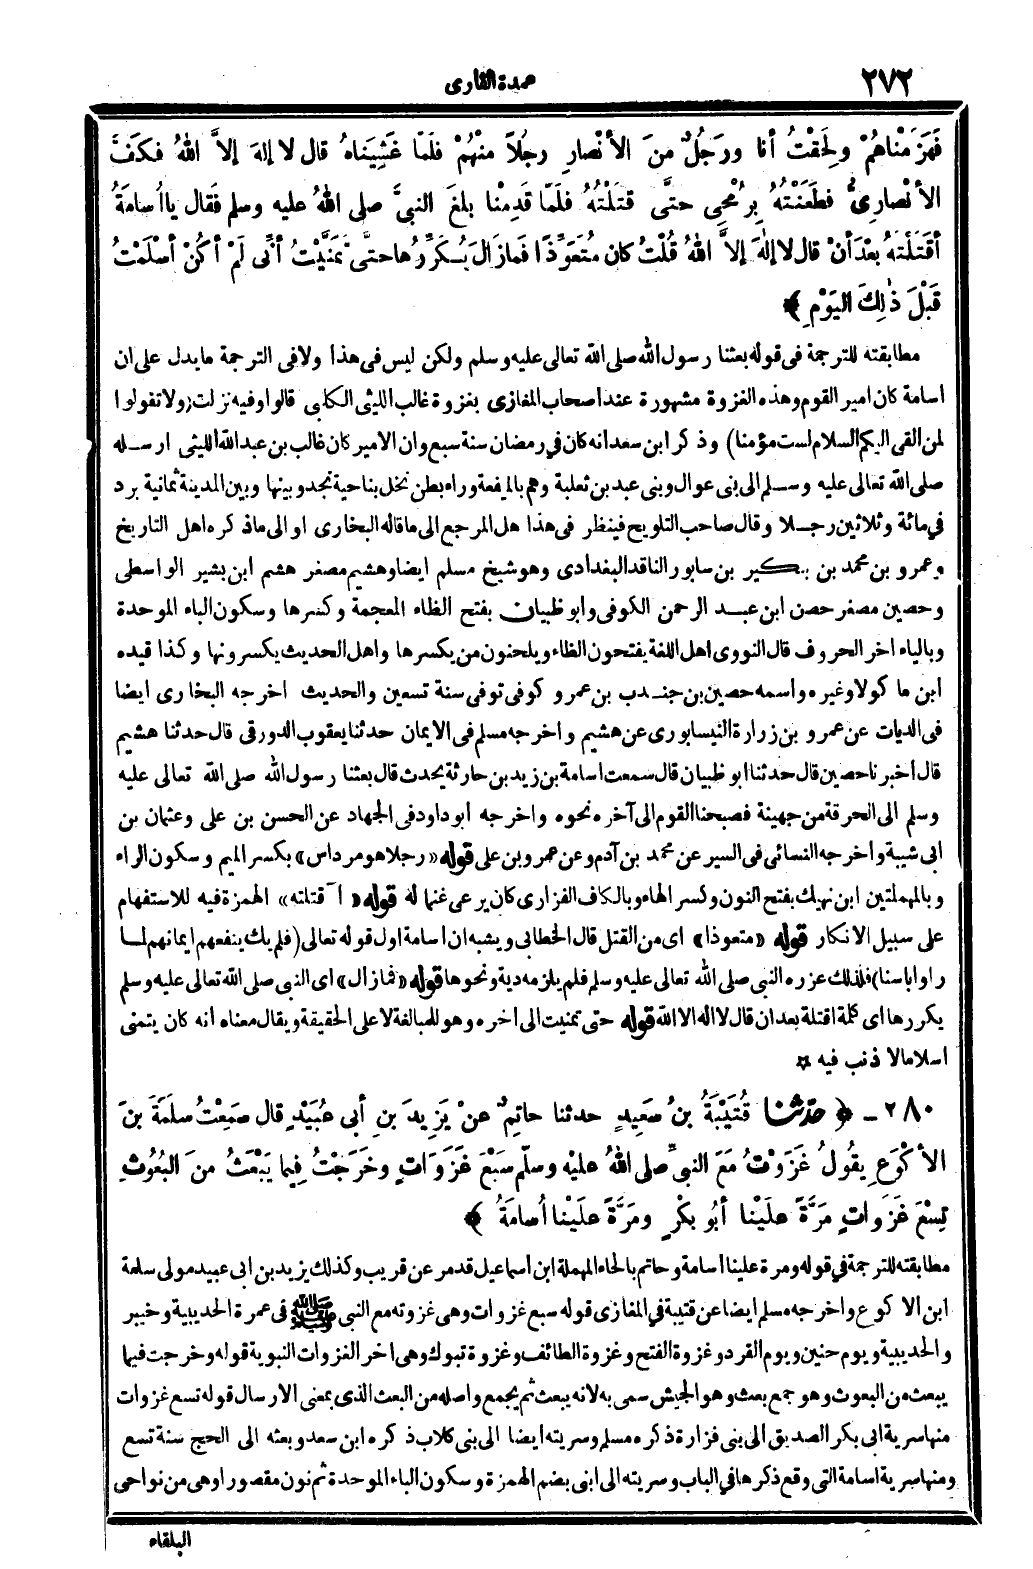 ٢٧٢
عمدة القارى
فَهَزَمْنَاهُمْ ولَحِقْتُ أنا ورَجُلٌ منَ الأنْصارِ رجُلاً منْهُمْ فلَمَّا غَشِينَاهُ قال لا إلهَ إلاَّ اللهُ فكَفَّ
الأنْصارِىُّ فطَعَنْتُهُ بِرُمْحِى حتَّى قتَلْتُهُ فلَمّا قَدِمْنا بلَغَ النبىَّ صلى اللهُ عليه وسلم فقال ياأُسامَةُ
أقَتَلْتَهُ بعْدَ أنْ قال لا إلٰهَ إلاَّ اللهُ قُلْتُ كان مُتَعَوِّذًا فمازَالَ يُكَرِّرُها حتَّى تَمَنَّيْتُ أنِّى لَمْ أكُنْ أسْلَمْتُ
قَبْلَ ذٰلِكَ اليَوْمِ ﴾
مطابقته للترجمة فى قوله بعثنا رسول الله صلى الله تعالى عليه وسلم ولكن ليس فى هذا ولا فى الترجمة ما يدل على ان
اسامة كان امير القوم وهذه الغزوة مشهورة عند اصحاب المغازى بغزوة غالب الليثى الكلبى قالوا وفيه نزلت (ولا تقولوا
لمن القى اليكم السلام لست مؤمنا) وذكر ابن سعد انه كان في رمضان سنة سبع وان الامير كان غالب بن عبد الله الليثى ارسله
صلى الله تعالى عليه وسلم الى بنى عوال وبنى عبد بن ثعلبة وهم بالميفعة وراء بطن نخل بناحية نجد وبينها وبين المدينة ثمانية برد
في مائة وثلاثين رجلا وقال صاحب التلويح فينظر فى هذا هل المرجع الى ما قاله البخارى او الى ما ذكره اهل التاريخ
وعمرو بن محمد بن بكير بن سابور الناقد البغدادى وهو شيخ مسلم ايضا وهشيم مصغر هشم ابن بشير الواسطى
وحصين مصغر حصن ابن عبد الرحمن الكوفى وابو ظبيان بفتح الظاء المعجمة وكسرها وسكون الباء الموحدة
وبالياء اخر الحروف قال النووى اهل اللغة يفتحون الظاء ويلحنون من يكسرها واهل الحديث يكسرونها وكذا قيده
ابن ماكولا وغيره واسمه حصين بن جندب بن عمرو كوفى توفى سنة تسعين والحديث اخرجه البخارى ايضا
فى الديات عن عمرو بن زرارة النيسابورى عن هشيم واخرجه مسلم فى الايمان حدثنا يعقوب الدورقى قال حدثنا هشيم
قال أخبرنا حصين قال حدثنا ابو ظبيان قال سمعت اسامة بن زيد بن حارثة يحدث قال بعثنا رسول الله صلى الله تعالى عليه
وسلم الى الحرقة من جهينة فصبحنا القوم الى آخره نحوه واخرجه أبو داود فى الجهاد عن الحسن بن على وعثمان بن
ابى شيبة واخرجه النسائى فى السير عن محمد بن آدم وعن عمرو بن على قوله «رجلا هو مرداس» بكسر الميم وسكون الراء
وبالمهملتين ابن نهيك بفتح النون وكسر الهاء وبالكاف الفزارى كان يرعى غنما له قوله «أقتلته» الهمزة فيه للاستفهام
على سبيل الانكار قوله «متعوذا» اى من القتل قال الخطابى ويشبه ان اسامة اول قوله تعالى (فلم يك ينفعهم ايمانهم لما
راوا باسنا) فلذلك عزره النبى صلى الله تعالى عليه وسلم فلم يلزمه دية ونحوها قوله «فمازال» اى النبى صلى الله تعالى عليه وسلم
يكررها اى كلمة اقتلة بعد ان قال لا اله الا الله قوله حتى تمنيت الى اخره وهو للمبالغة لا على الحقيقة ويقال معناه أنه كان يتمنى
اسلاما لا ذنب فيه ✡
٢٨٠ - ﴿ حدّثنا قُتَيْبَةُ بنُ سَعِيدٍ حدثنا حاتِمٌ عنْ يَزِيدَ بنِ أبى عُبَيْدٍ قال سَمِعْتُ سلَمَةَ بنَ
الأكْوَعِ يقُولُ غَزَوْتُ مَعَ النبىِّ صلى اللهُ عليْه وسلّم سَبْعَ غَزَوَاتٍ وخَرَجْتُ فِيما يَبْعَثُ منَ البُعُوثِ
تِسْعَ غَزَواتٍ مَرَّةً علَيْنا أبُو بكْرٍ ومَرَّةً علَيْنا أُسامَةُ ﴾
مطابقته للترجمة في قوله ومرة علينا أسامة وحاتم بالحاء المهملة ابن اسماعيل قد مر عن قريب وكذلك يزيد بن ابى عبيد مولى سلمة
ابن الاكوع واخرجه مسلم ايضا عن قتيبة في المغازى قوله سبع غزوات وهى غزوته مع النبى ﷺ فى عمرة الحديبية وخيبر
والحديبية ويوم حنين ويوم القرد وغزوة الفتح وغزوة الطائف وغزوة تبوك وهى اخر الغزوات النبوية قوله وخرجت فيما
يبعث من البعوث وهو جمع بعث وهو الجيش سمى به لانه يبعث ثم يجمع واصله من البعث الذى بمعنى الارسال قوله تسع غزوات
منها سرية ابى بكر الصديق الى بنى فزارة ذكره مسلم وسريته ايضا الى بنى كلاب ذكره ابن سعد وبعثه الى الحج سنة تسع
ومنها سرية اسامة التى وقع ذكرها في الباب وسريته الى ابنى بضم الهمزة وسكون الباء الموحدة ثم نون مقصورا وهى من نواحى
البلقاء